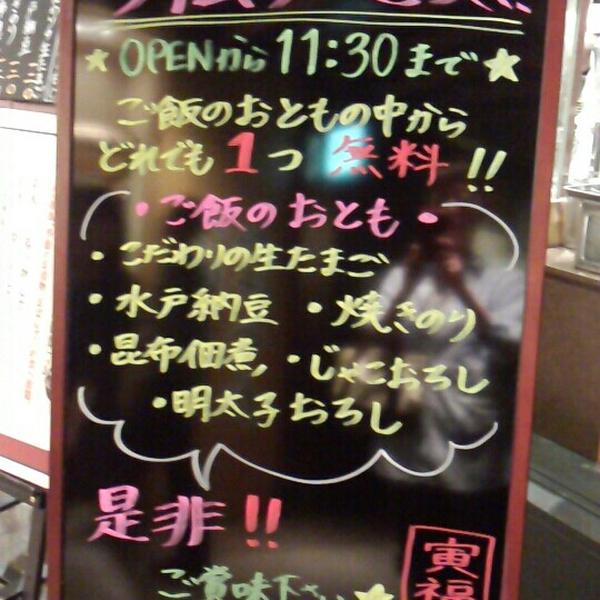 タイムサービス
★OPENから11:30まで★
ご飯のおともの中から
どれでも1つ無料!!
・ご飯のおとも・
・こだわりの生たまご
・水戸納豆 ・焼きのり
・昆布佃煮, ・じゃこおろし
・明太子おろし
是非!!
ご賞味下さい★
寅福